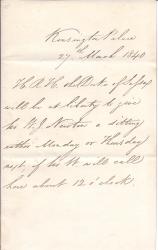 Kensington Palace
27th March 1840
H.R.H. the Duke of Sussex
will be at liberty to give
Mr W. J. Newton a sitting
either Monday or Thursday
next, if Mr N. will call
here about 12 o'clock.